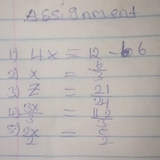 Assignment
1) 4x = 12 - 6
2) x = 6/3
3) z = 21/24
4) 3x/3 =
5) 2x/2 = 5/2